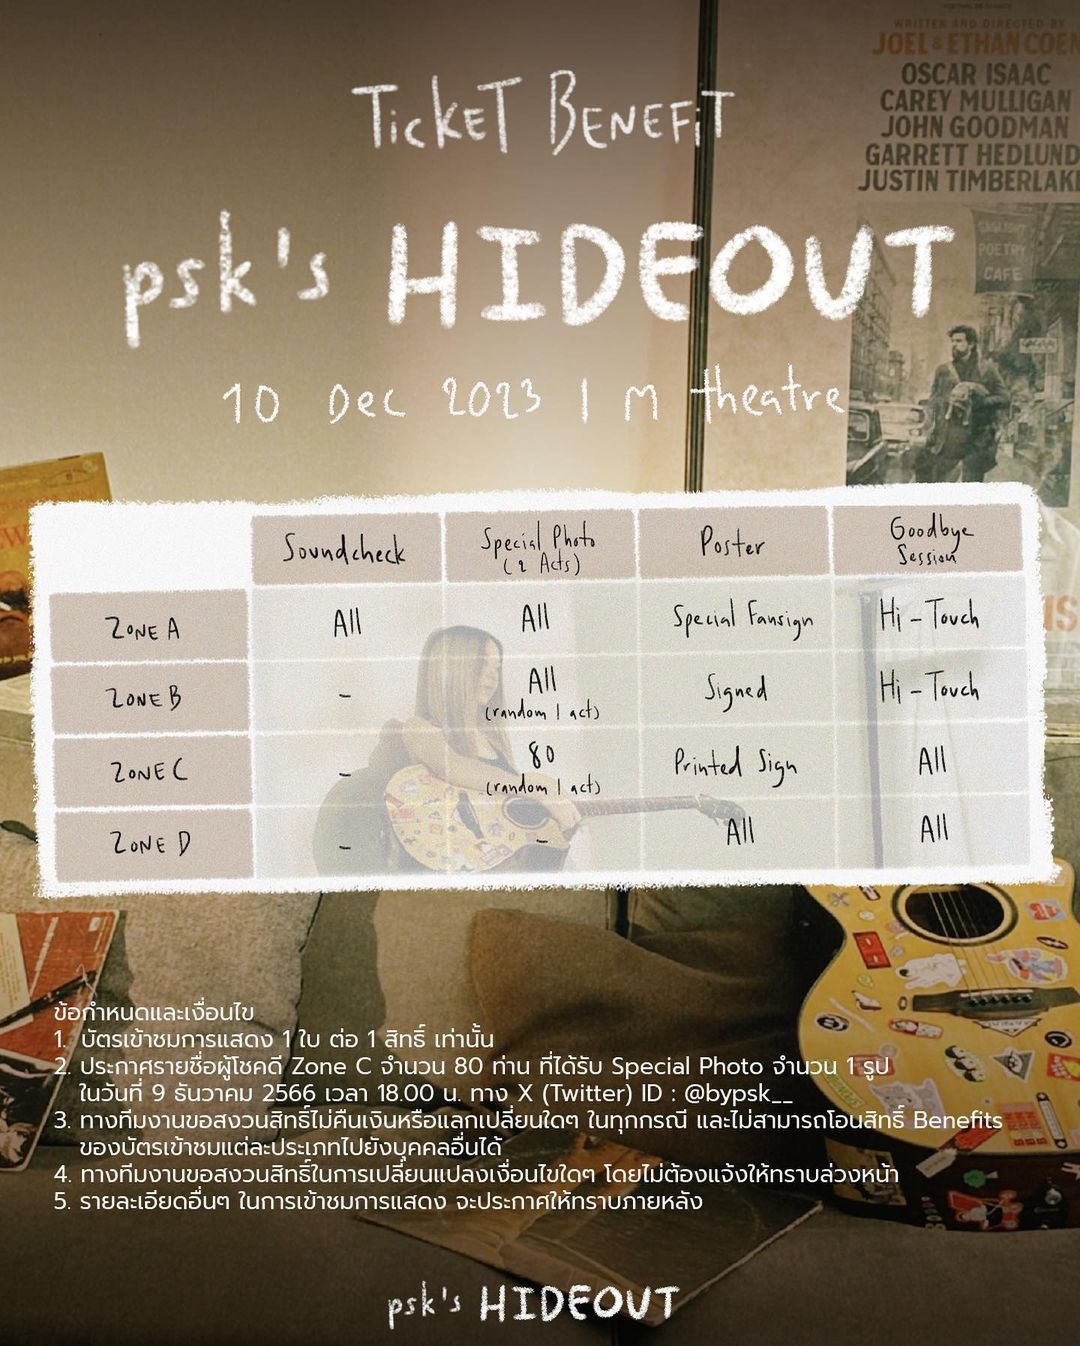 WRITTEN AND DIRECTED BY
JOEL & ETHAN COEN
OSCAR ISAAC
CAREY MULLIGAN
JOHN GOODMAN
GARRETT HEDLUND
JUSTIN TIMBERLAKE
GASLIGHT
POETRY
CAFE
TickeT BENEFiT
psk's HIDEOUT
10 Dec 2023 | M theatre
Soundcheck Special Photo (2 Acts) Poster Goodbye Session
ZONE A All All Special Fansign Hi - Touch
ZONE B - All (random 1 act) Signed Hi - Touch
ZONE C - 80 (random 1 act) Printed Sign All
ZONE D - - All All
ข้อกำหนดและเงื่อนไข
1. บัตรเข้าชมการแสดง 1 ใบ ต่อ 1 สิทธิ์ เท่านั้น
2. ประกาศรายชื่อผู้โชคดี Zone C จำนวน 80 ท่าน ที่ได้รับ Special Photo จำนวน 1 รูป
ในวันที่ 9 ธันวาคม 2566 เวลา 18.00 น. ทาง X (Twitter) ID : @bypsk__
3. ทางทีมงานขอสงวนสิทธิ์ไม่คืนเงินหรือแลกเปลี่ยนใดๆ ในทุกกรณี และไม่สามารถโอนสิทธิ์ Benefits
ของบัตรเข้าชมแต่ละประเภทไปยังบุคคลอื่นได้
4. ทางทีมงานขอสงวนสิทธิ์ในการเปลี่ยนแปลงเงื่อนไขใดๆ โดยไม่ต้องแจ้งให้ทราบล่วงหน้า
5. รายละเอียดอื่นๆ ในการเข้าชมการแสดง จะประกาศให้ทราบภายหลัง
psk's HIDEOUT